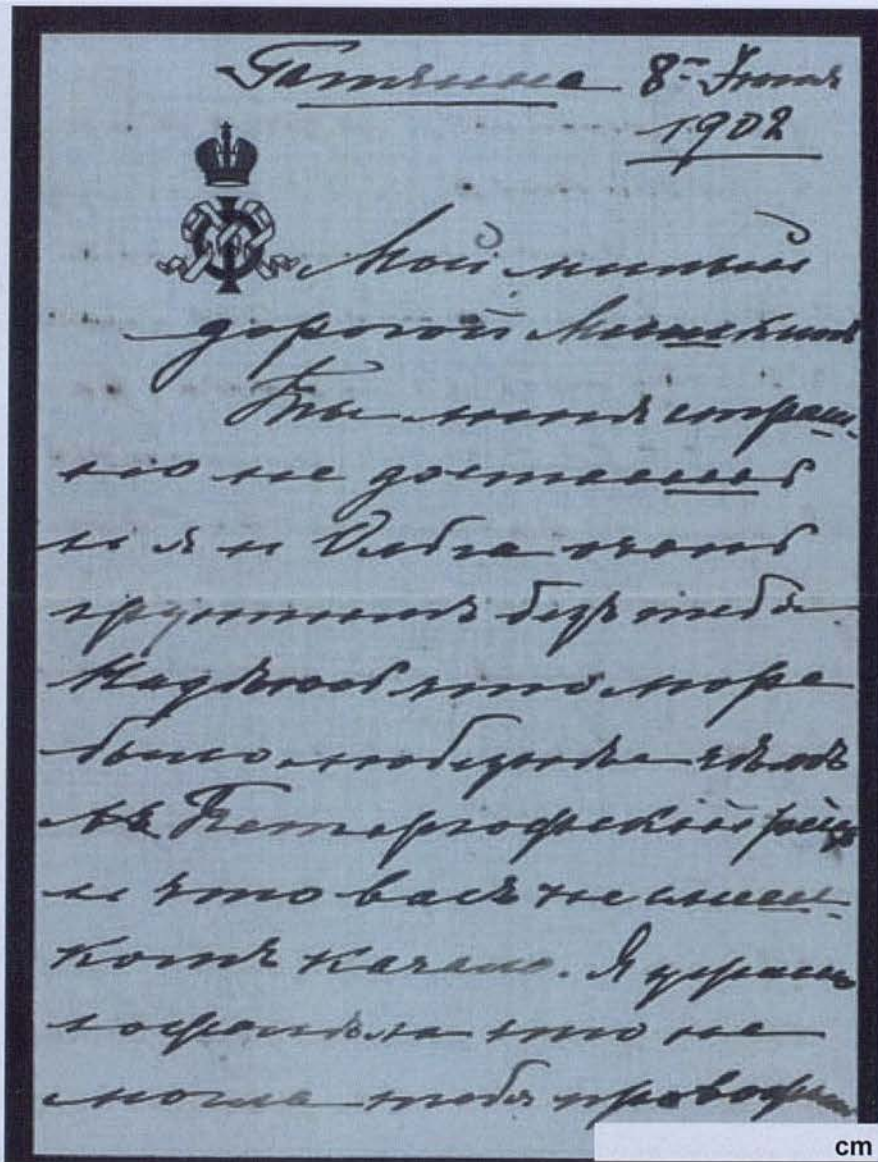 Гатчина 8го Июня
1902
Мой милый
дорогой Мишкинъ
Ты мня страш-
но не достаешь
и я и Ольга очень
грустимъ безъ тебя
Надѣюсь что море
было любезнѣе чѣмъ
въ Петергофскій рейдъ
и что васъ не слиш-
комъ качало. Я ужасно
что не
могла тебя проводить
cm